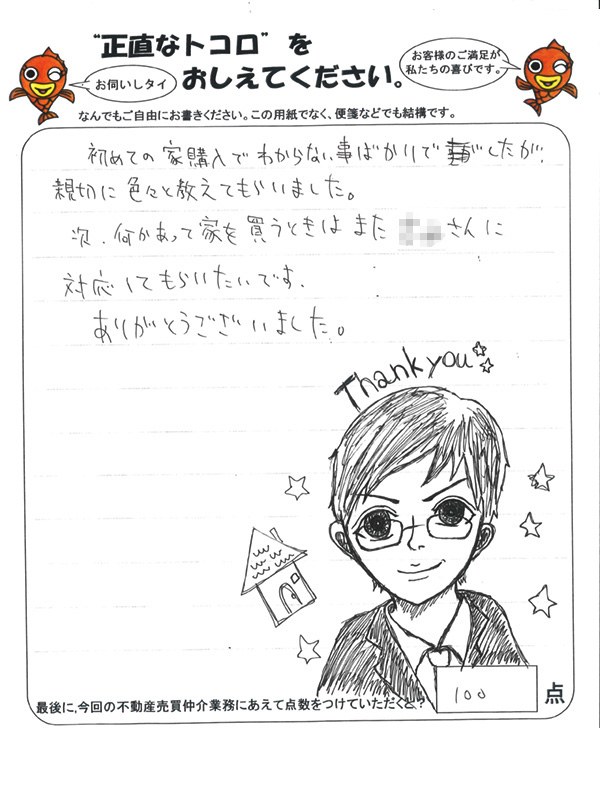 "正直なトコロ"を
おしえてください。
お伺いしタイ
お客様のご満足が
私たちの喜びです。
なんでもご自由にお書きください。この用紙でなく、便箋などでも結構です。
初めての家購入でわからない事ばかりで したが、
親切に色々と教えてもらいました。
次、何かあって家を買うときは また さんに
対応してもらいたいです.
ありがとうございました。
Thank you
最後に,今回の不動産売買仲介業務にあえて点数をつけていただくと?
100 点